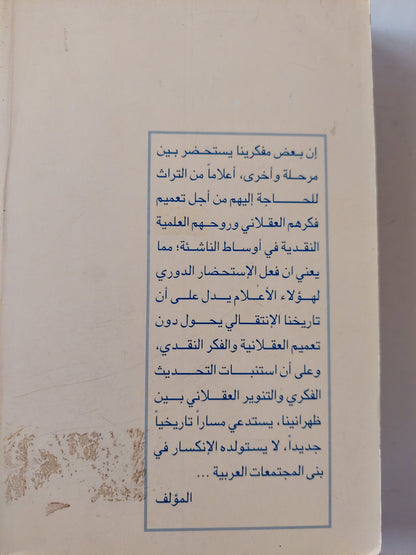 إن بعض مفكرينا يستحضر بين
مرحلة وأخرى، أعلاماً من التراث
للحـــاجة إليهم من أجل تعميم
فكرهم العقلاني وروحهم العلمية
النقدية في أوساط الناشئة؛ مما
يعني ان فعل الإستحضار الدوري
لهؤلاء الأعلام يدل على أن
تاريخنا الإنتقالي يحول دون
تعميم العقلانية والفكر النقدي،
وعلى أن استنبات التحديث
الفكري والتنوير العقلاني بين
ظهرانينا، يستدعي مساراً تاريخياً
جديداً، لا يستولده الإنكسار في
بنى المجتمعات العربية ...
المؤلف